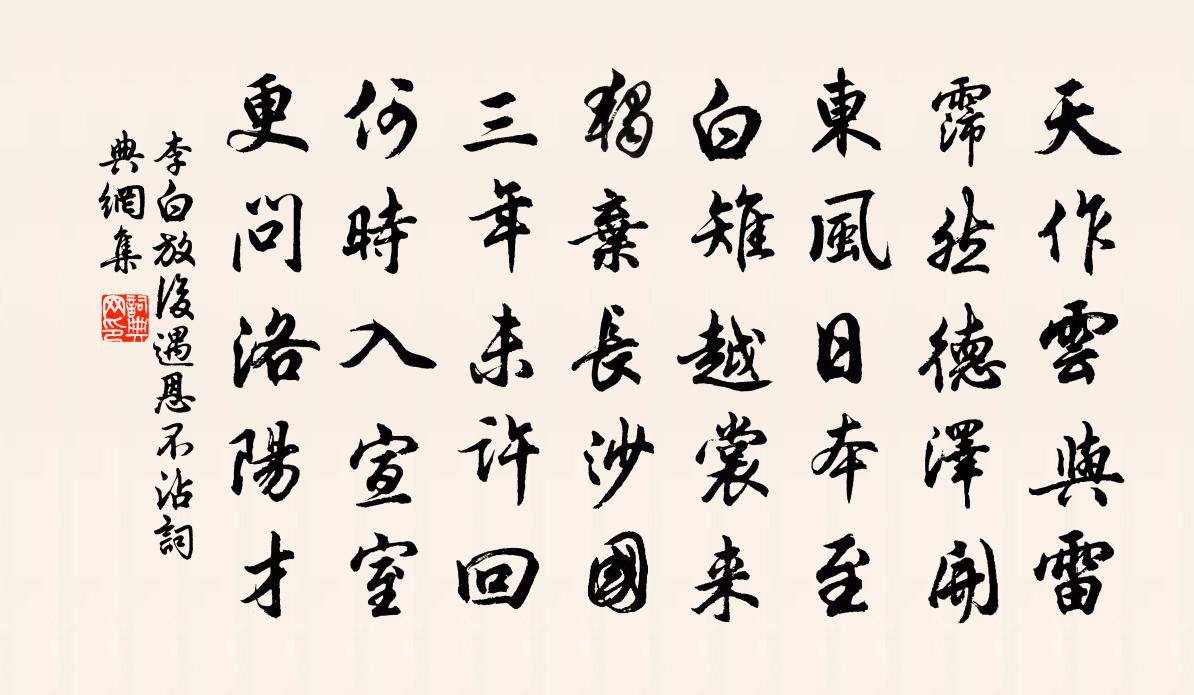 天作雲與雷
霈然德澤開
東風日本至
白雉越裳来
獨棄長沙國
三年未許回
何時入宣室
更問洛陽才
李白放後遇恩不沾詞
典網集
詞典网印